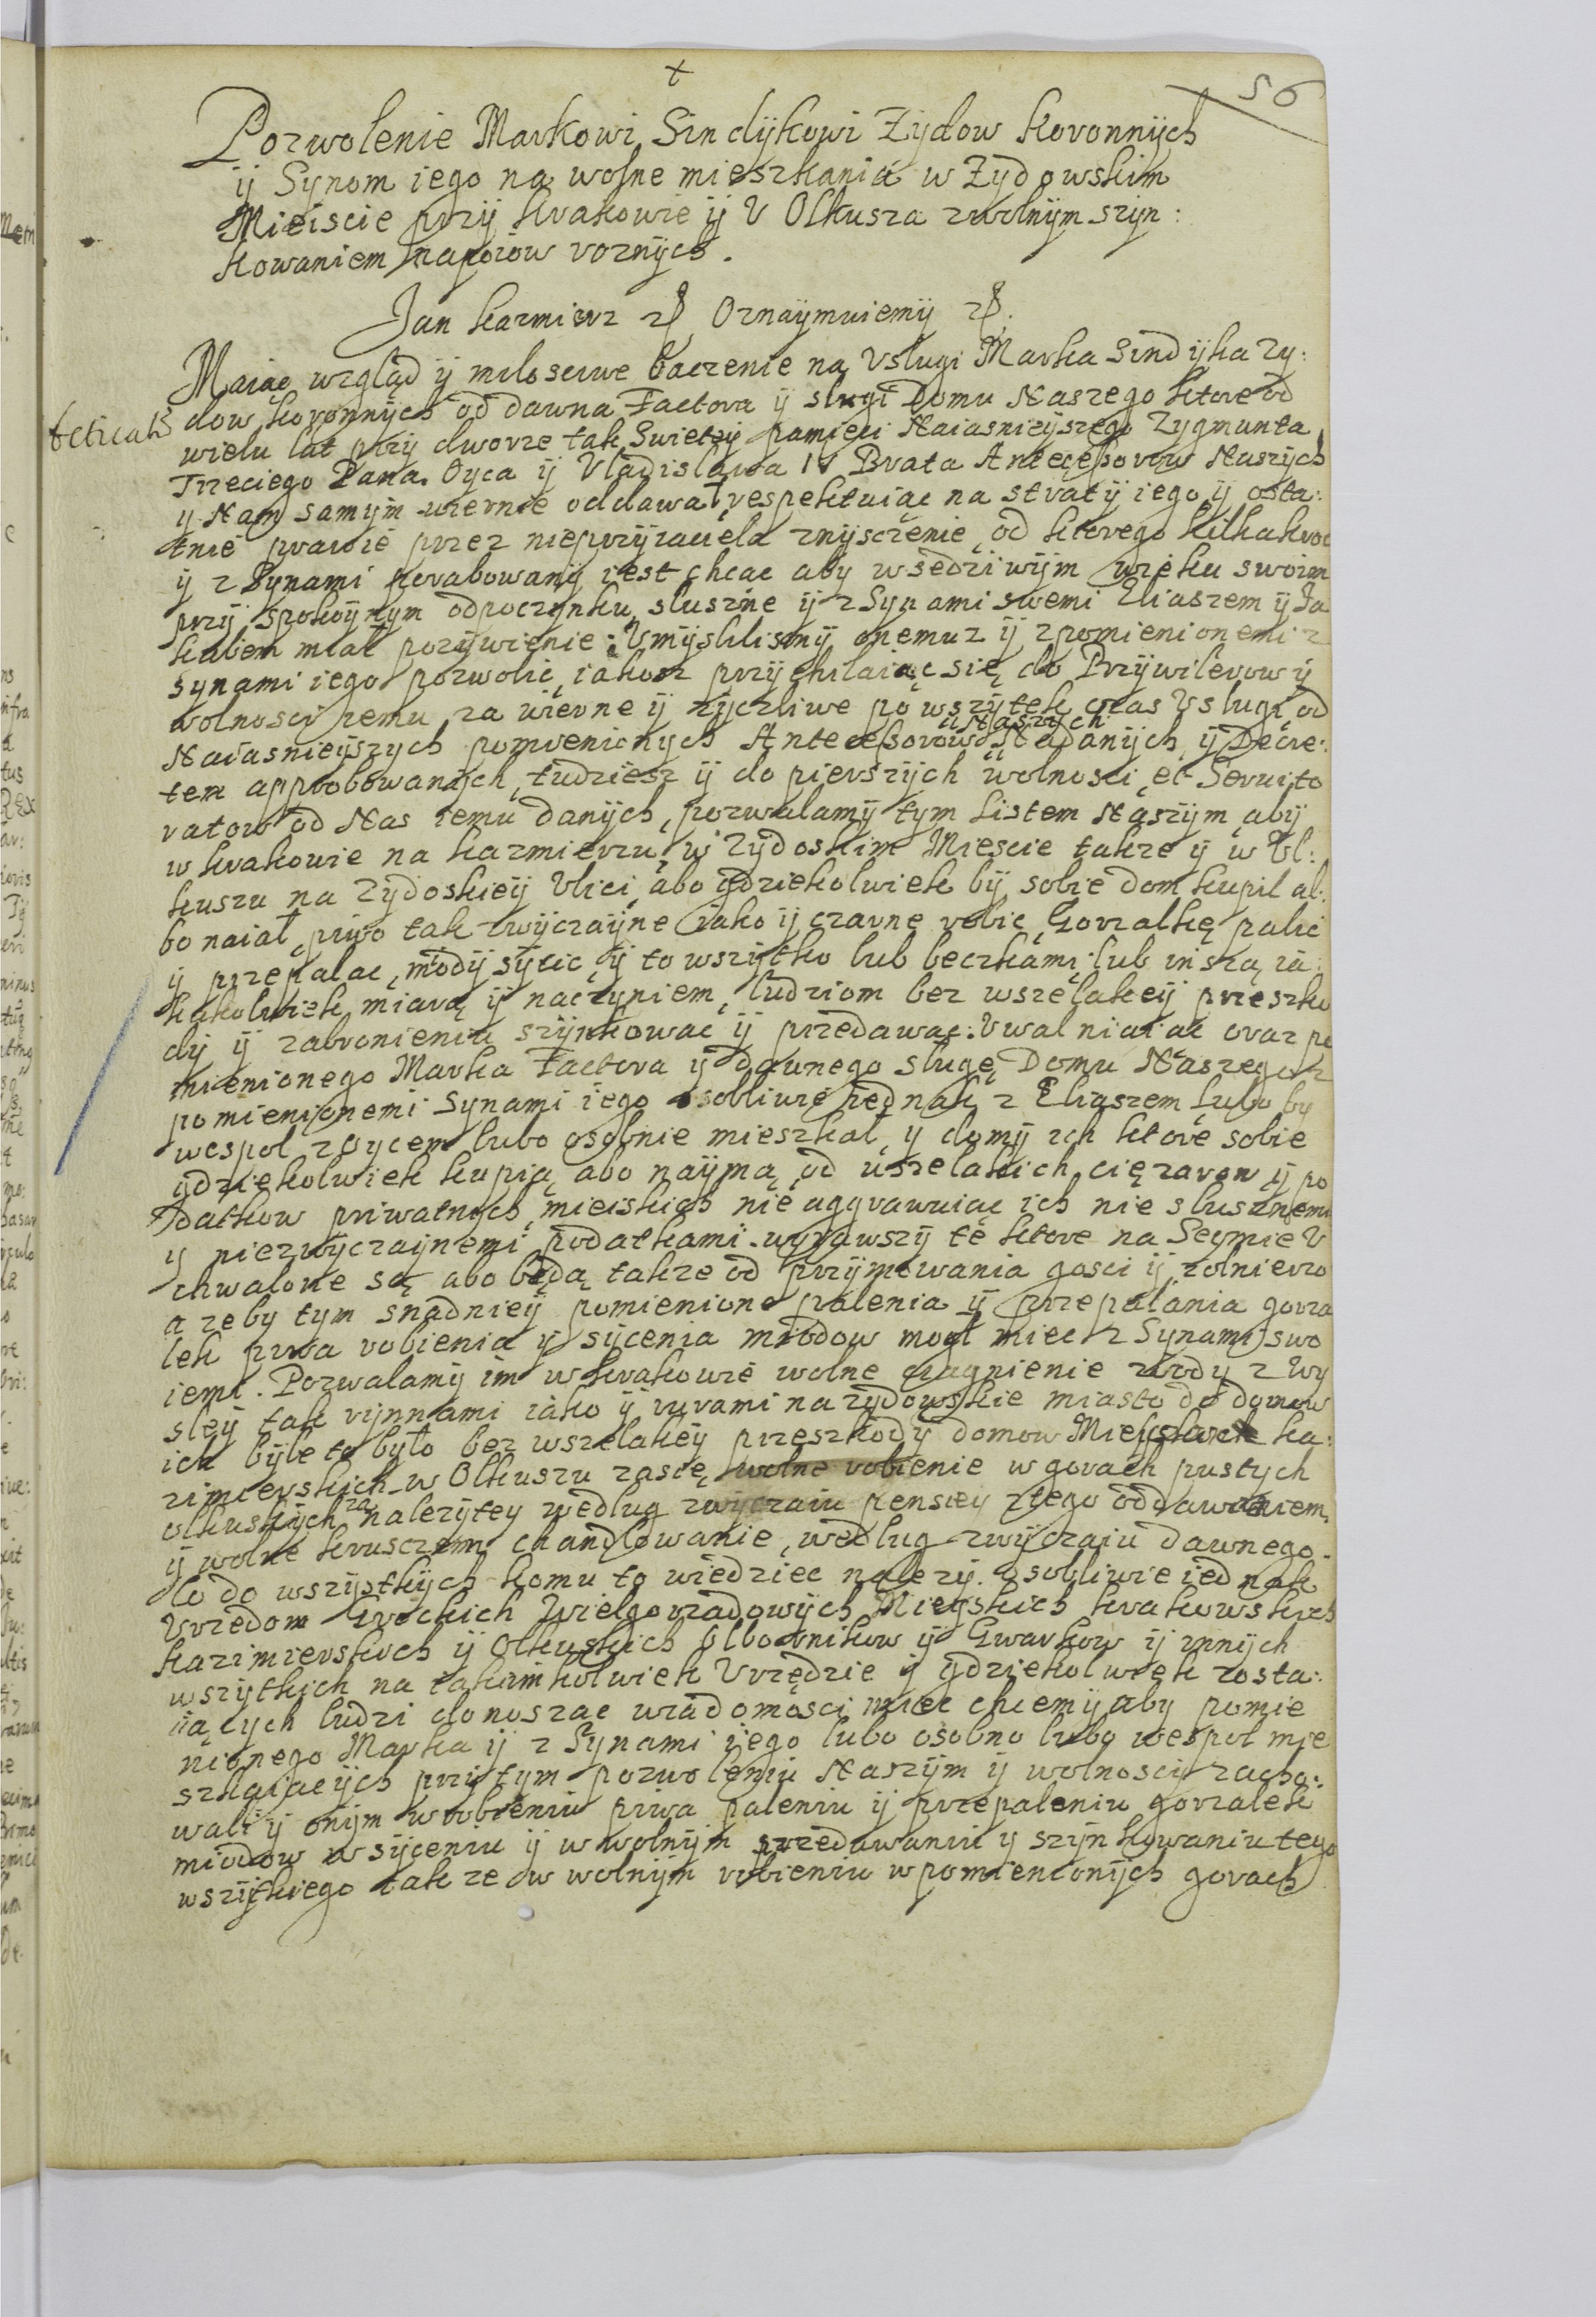 +
56
Pozwolenie Markowi Sindÿkowi Zydow Koronnÿch
ÿ Synom iego na wolne mieszkania w Zydowskim
Mieiscie przÿ Krakowie ÿ V Olkusza zwolnÿm szÿn:
kowaniem napoiow roznÿch.
Jan Kazmierz Oznaÿmuiemÿ
Maiąc wzgląd ÿ milosciwe baczenie na Vslugi Marka Sindÿka Zy:
dow koronnÿch od dawna Factora ÿ slugi Domu Naszego ktore od
wielu lat przÿ dworze tak Swietey pamieci Naiasnieÿszego Zygmunta
Trzeciego Pana Oyca ÿ Vladislawa IV Brata Antecessorow Naszÿch
y Nam samÿm wiernie oddawał respektuiąc na stratÿ iego ÿ osta:
tnie prawie przez nieprzÿiaciela znÿsczenie od ktorego kilkakroc
ÿ z Synami zrabowanÿ iest chcac aby w sedziwÿm wieku swoim
przÿ spokoÿnym odpoczÿnku slusznie ÿ z Synami swemi Eliaszem ÿ Ja
kubem miał pozÿwienie: Vmÿslilismÿ onemuz ÿ zpomienionemi z
Synami iego pozwolic, iakosz przÿchilaiąc się do Przÿwileiow ÿ
wolnosci iemu za wierne ÿ zÿczliwe po wszÿtek czas Vslugi od
Naiasnieÿszych pomienionych Antecessorow Naszÿch Nadanÿch ÿ Decre:
tem approbowanÿch, tudziesz ÿ do pierszÿch wolnosci et Servito
ratow od Nas iemu danÿch, pozwalamÿ tym Listem Naszÿm abÿ
w Krakowie na Kazmierzu w Zÿdoskim Miescie takze ÿ w Ol:
kuszu na Zydoskieÿ Vlici abo gdziekolwiek bÿ sobie dom kupil al:
bo naiął, piwo tak zwÿczaÿne iako ÿ czarne robic, Gorzalkę palic
ÿ przepalac, miodÿ sÿcic ÿ to wszÿtko lub beczkami lub inszą ia:
kakolwiek miarą ÿ naczÿniem, ludziom bez wszelakieÿ przeszko
dÿ ÿ zabronieniu szÿnkowac ÿ przedawac: Vwalniaiąc oraz po
mienionego Marka Factora ÿ dawnego slugę Domu Naszego z
pomienionemi Synami iego osobliwie iednak z Eliaszem lubo by
wespol z oycem lubo osobnie mieszkał, y domÿ ich ktore sobie
gdziekolwiek kupią abo naÿmą od wszelakich ciężarow ÿ po
datkow priwatnych mieiskich nie aggrawuiąc ich nie slusznemi
y niezwÿczaÿnemi podatkami wÿiąwszÿ te ktore na Seymie V
chwalone są abo będą takze od przÿmowania gosci ÿ zolnierzo
a zeby tym snadnieÿ pomienione palenia ÿ przepalania gorza
lek piwa robienia ÿ sÿcenia miodow mogł miec z Synami swo
iemi. Pozwalamÿ im w Krakowie wolne ciągnienie wody z Wy
sleÿ tak rÿnnami iako ÿ rurami na zÿdowskie miasto do domow
ich bÿle to bÿło bez wszelakeÿ przeszkodÿ domow Mieyskich Ka:
zimierskich w Olkuszu zasię wolne robienie w gorach pustych
olkuskÿch za nalezÿtey według zwÿczaiu pensieÿ ztego oddawaniem
ÿ wolne kruscami chandlowanie, według zwÿczaiu dawnego.
Co do wszÿstkÿch komu to wiedziec nalezÿ osobliwie iednak
Vrzędom Grockich Wielgorządowÿch Mieÿskich krakowskich
kazimierskich ÿ olkuskich Olbornikow ÿ Gwarkow ÿ innÿch
wszÿtkich na iakimkolwiek Vrzędzie ÿ gdziekolwiek zosta:
iących ludzi donosząc wiadomosci miec chcemÿ aby pomie
nionego Marka ÿ z Synami iego lubo osobno lubo wespol mie
szkaiącÿch przÿ tym pozwoleniu Naszÿm ÿ wolnosci zacho:
wali ÿ onÿm w robieniu piwa paleniu ÿ przepaleniu gorzalek
miodow w sÿceniu ÿ w wolnÿm przedawaniu y szÿnkowaniu tego
wszÿtkiego takze w wolnÿm robieniu w pomienionÿch gorach